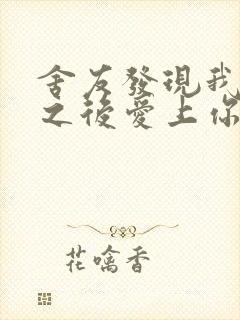 舍友發現我
之後愛上你
花噙香